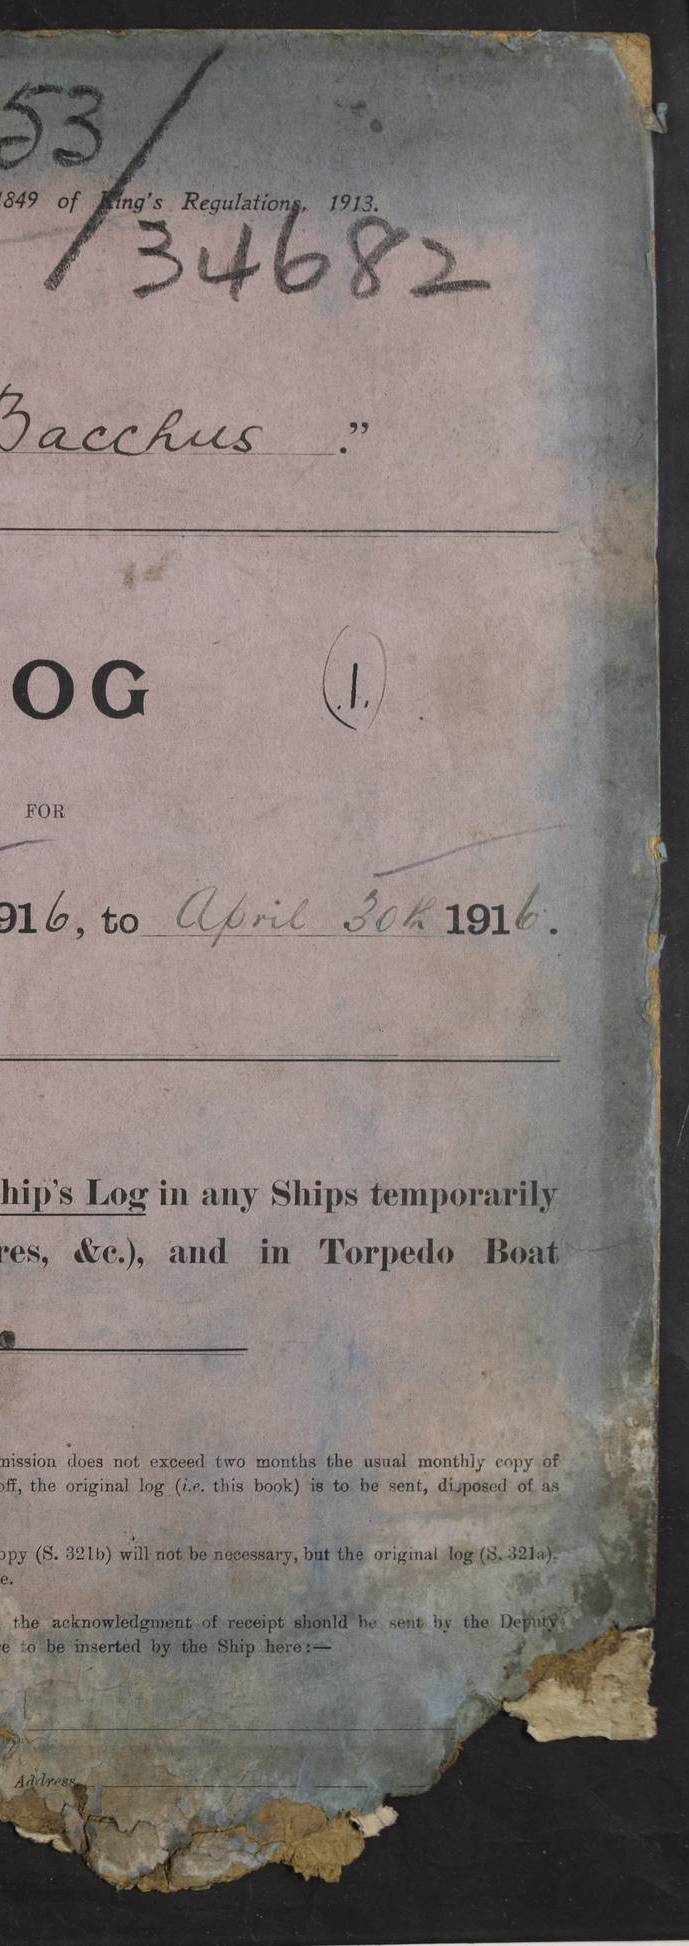 53/
1849 of King's Regulations, 1913.
34682
Bacchus ."
OG
.1.
FOR
916, to April 30th 1916.
hip's Log in any Ships temporarily
res, &c.), and in Torpedo Boat
mission does not exceed two months the usual monthly copy of
off, the original log (i.e. this book) is to be sent, disposed of as
opy (S. 321b) will not be necessary, but the original log (S. 321a),
e.
the acknowledgment of receipt should be sent by the Deputy
e to be inserted by the Ship here:—
Address